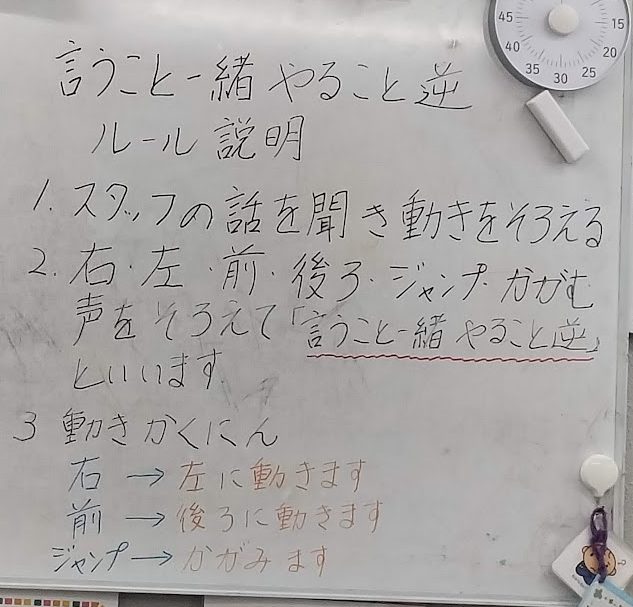 45 15
40 20
35 30 25
言うこと一緒 やること逆
ルール説明
1. スタッフの話を聞き動きをそろえる
2. 右・左・前・後ろ・ジャンプ・かがむ
声をそろえて「言うこと一緒 やること逆」
といいます
3 動きかくにん
右 → 左に動きます
前 → 後ろに動きます
ジャンプ → かがみます